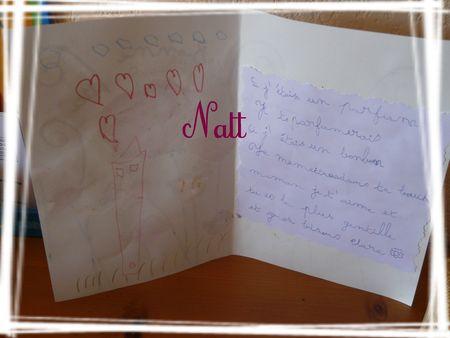 Natt
si j'étais un parfum
je te parfumerais
si j'étais un bonbon
je me metrais dans ta bouche
maman je t'aime et
tu es la plus gentille
et gros bisous Clara